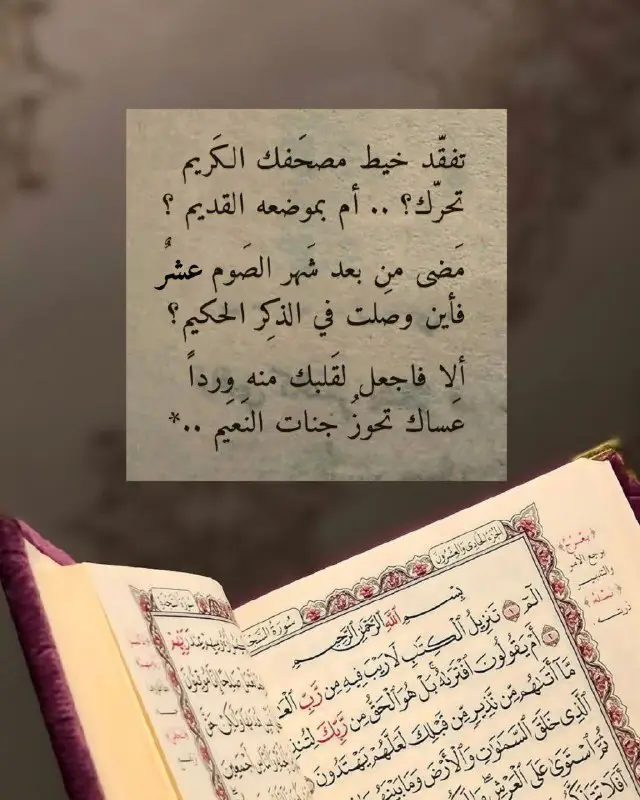 تفقّد خيط مصحَفك الكَريم
تحرّك؟ .. أم بموضعه القديم ؟
مَضى مِن بعد شَهر الصَوم عشرٌ
فأين وصلت في الذكِر الحكيم؟
ألا فاجعل لقَلبك منه وِرداً
عَساك تحوزُ جنات النَعيم ..*
الجزء الحادي والعشرون
سورة السجدة
بِسْمِ اللَّهِ الرَّحْمَٰنِ الرَّحِيمِ
الٓمٓ ١ تَنزِيلُ ٱلْكِتَٰبِ لَا رَيْبَ فِيهِ مِن رَّبِّ
٢ أَمْ يَقُولُونَ ٱفْتَرَىٰهُ بَلْ هُوَ ٱلْحَقُّ مِن رَّبِّكَ
مَّآ أَتَىٰهُم مِّن نَّذِيرٍ مِّن قَبْلِكَ لَعَلَّهُمْ يَهْتَدُونَ
ٱلَّذِى خَلَقَ ٱلسَّمَٰوَٰتِ وَٱلْأَرْضَ وَمَا بَيْنَهُمَا
ثُمَّ ٱسْتَوَىٰ عَلَى ٱلْعَرْشِ
﴿يعرج﴾
يرجع الأمر
والتدبير
﴿نسله﴾
ذريته